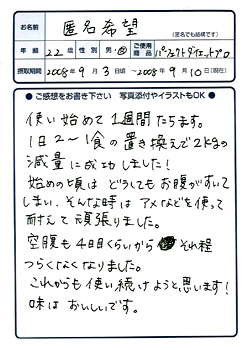 お名前 匿名希望 (匿名でも結構です)
年齢 22歳 性別 男・女 ご使用商品 パーフェクトダイエットプロ
摂取期間 2008年9月3日頃 〜2008年9月10日(現在)
ご感想をお書き下さい 写真添付やイラストもOK
使い始めて1週間たちます。
1日2〜1食の置き換えで2kgの
減量に成功しました!
始めの頃はどうしてもお腹がすいて
しまい、そんな時はアメなどを使って
耐えて頑張りました。
空腹も4日目くらいからそれ程
つらくなくなりました。
これからも使い続けようと思います!
味はおいしいです。